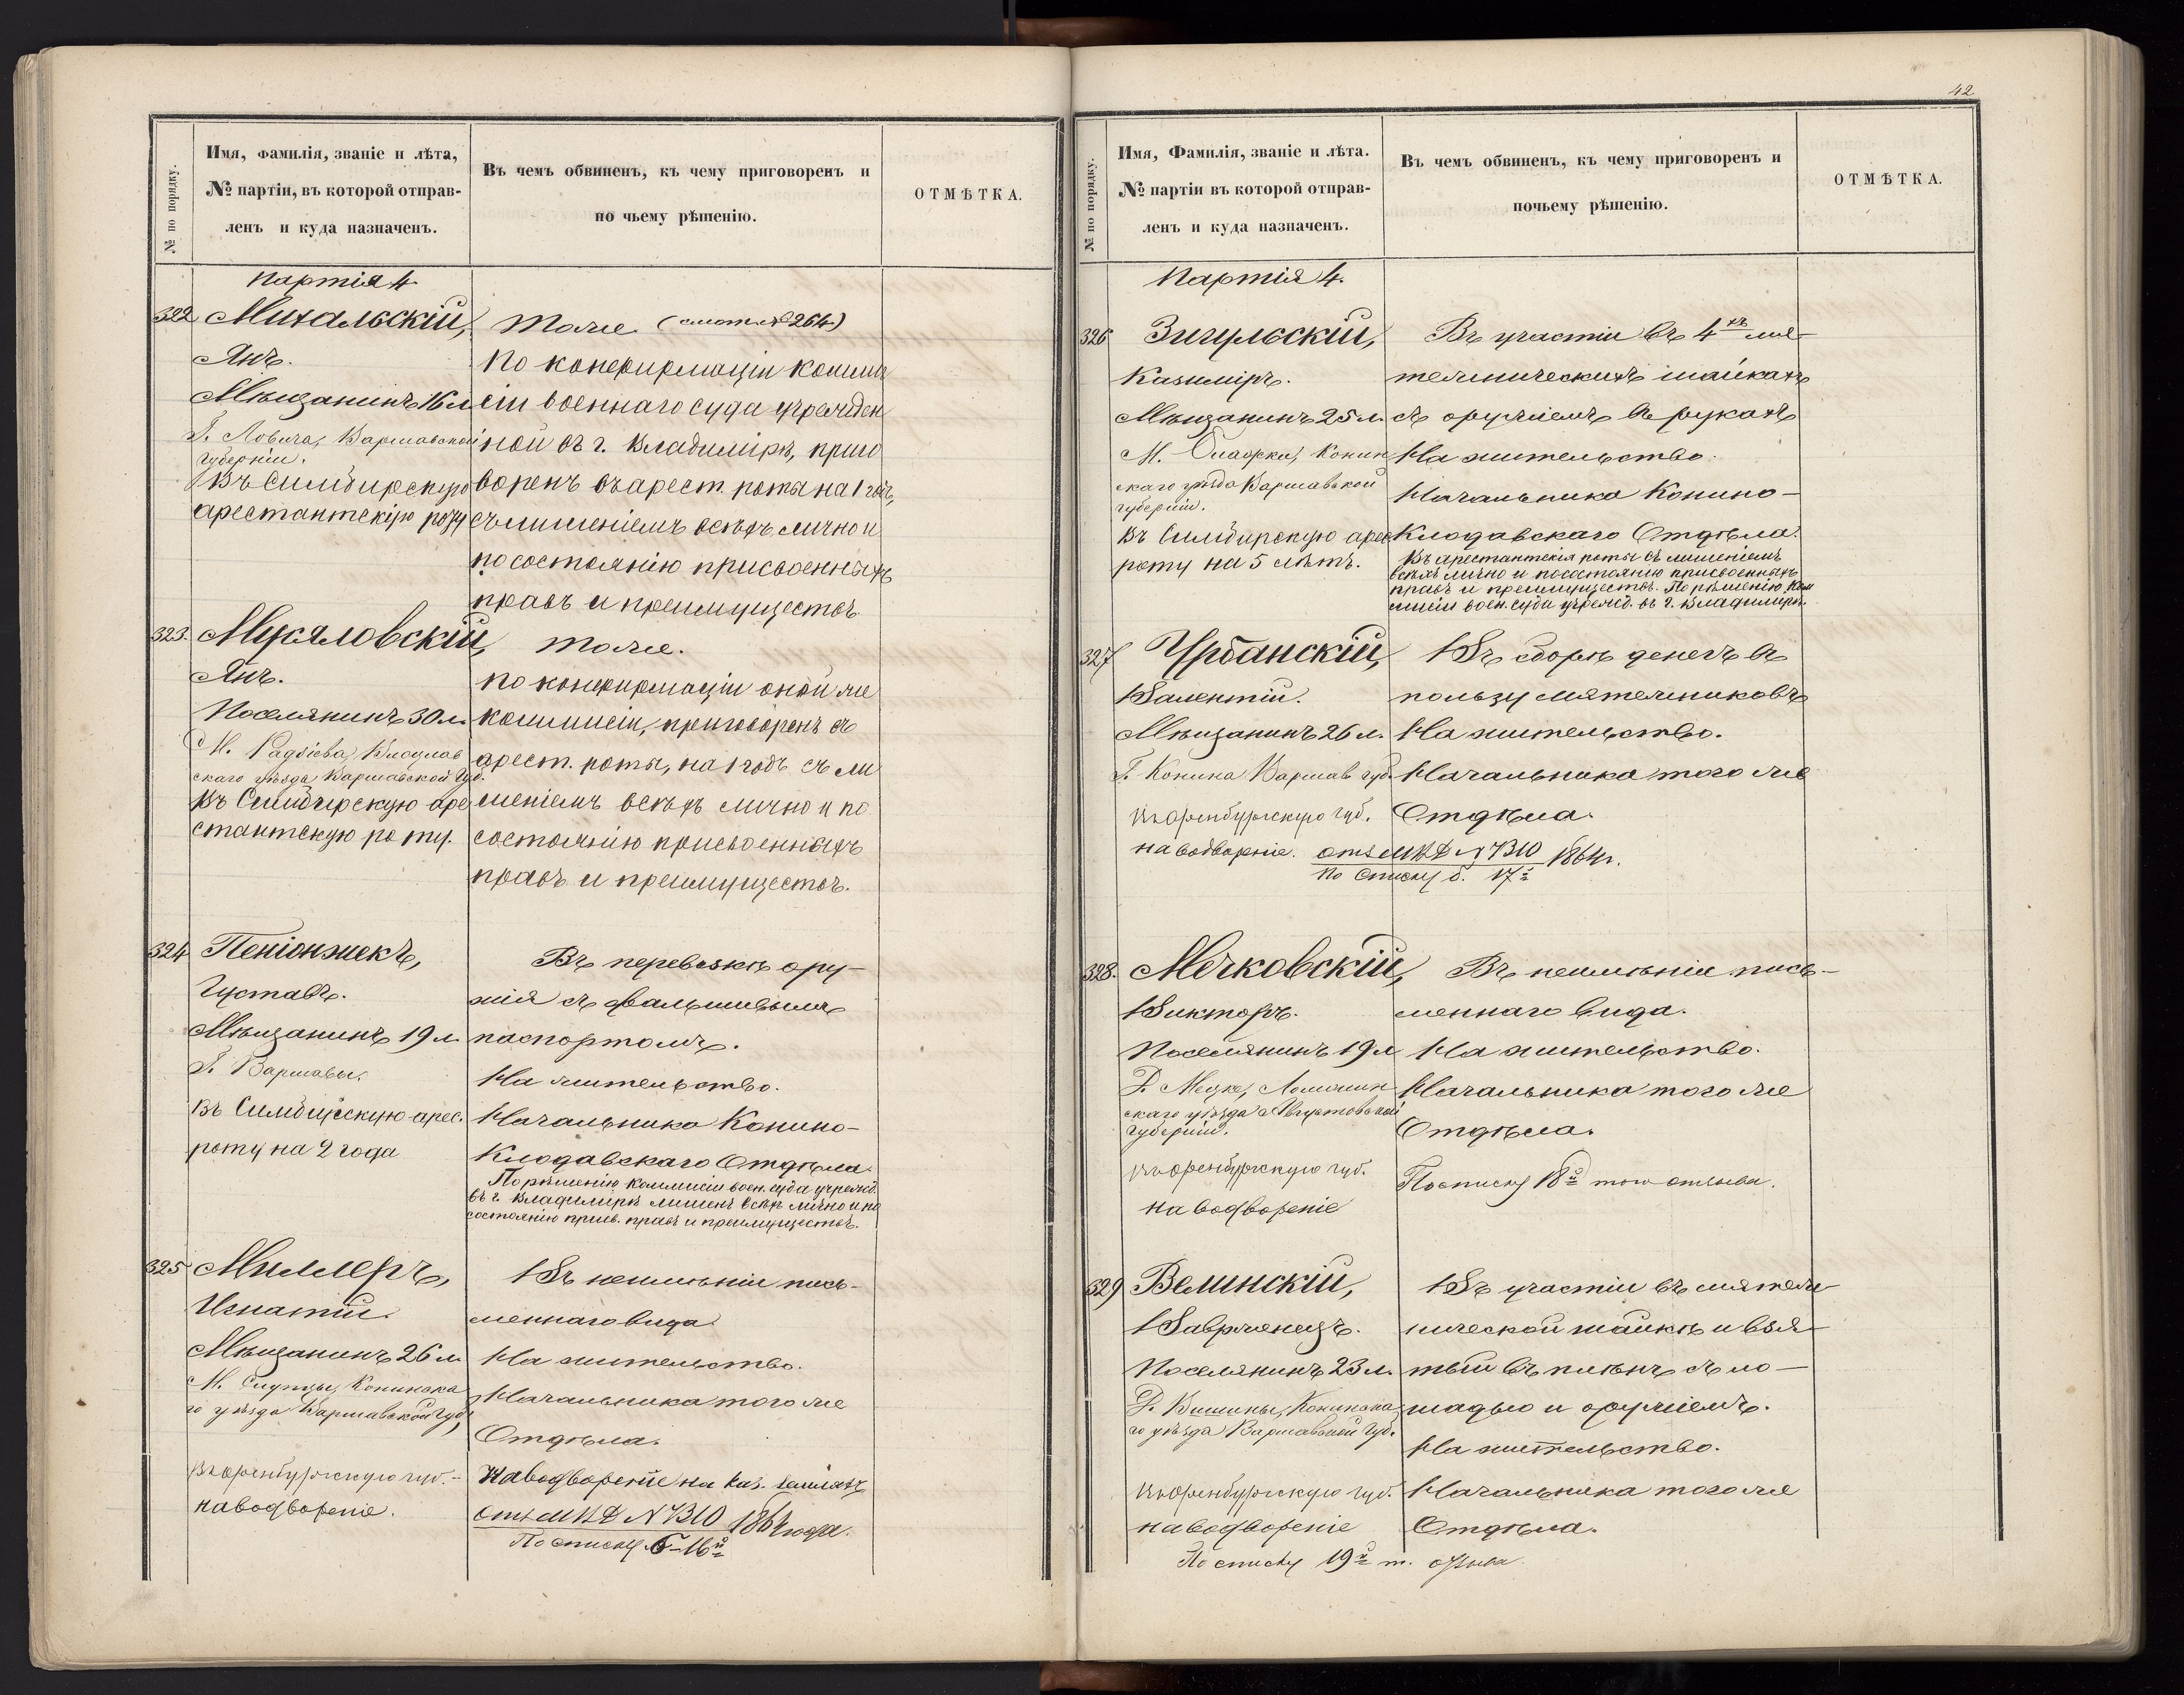 № по порядку.
Имя, Фамилія, званіе и лѣта,
№ партіи, въ которой отправ-
ленъ и куда назначенъ.
Въ чемъ обвиненъ, къ чему приговоренъ и
по чьему рѣшенію.
ОТМѢТКА.
Партія 4
322 Михальскій,
Янъ.
Мѣщанинъ 16 л
Г. Ловича, Варшавской
губерніи.
Въ Симбирскую
арестантскую роту
тоже (смот. № 264)
По конфирмаціи комми
сіи военнаго суда учрежден
ной въ г. Владимірѣ, приго
воренъ въ арест. роты на 1 годъ,
съ лишеніемъ всѣхъ лично и
по состоянію присвоенныхъ
правъ и преимуществъ
323. Мусяловскій,
Янъ.
Поселянинъ 30 л.
М. Радзіева, Влоцлав
скаго уѣзда Варшавской Губ.
Въ Симбирскую аре
стантскую роту.
тоже.
по конфирмаціи оной же
коммисіи, приговоренъ въ
арест. роты, на 1 годъ съ ли
шеніемъ всѣхъ лично и по
состоянію присвоенныхъ
правъ и преимуществъ.
324 Пеніонжекъ,
Густавъ.
Мѣщанинъ 19 л.
Г. Варшавы.
Въ Симбирскую арес.
роту на 2 года
Въ перевозкѣ ору-
жія съ фальшивымъ
паспортомъ.
На жительство.
Начальника Конино-
Клодавскаго Отдѣла.
По рѣшенію коммисіи воен. суда учрежд.
въ г. Владимірѣ лишенъ всѣхъ лично и по
состоянію присв. правъ и преимуществъ.
325 Миллеръ,
Игнатій.
Мѣщанинъ 26 л.
М. Слупцы, Конинска
го уѣзда Варшавской Губ.
Въ Оренбургскую губ.-
на водвореніе.
Въ неимѣніи пись-
меннаго вида
На жительство.
Начальника того же
Отдѣла.
На водвореніе на каз. земляхъ
отз. МВД № 7310 1864 года.
По списку б-16й
42
№ по порядку.
Имя, Фамилія, званіе и лѣта.
№ партіи въ которой отправ-
ленъ и куда назначенъ.
Въ чемъ обвиненъ, къ чему приговоренъ и
почьему рѣшенію.
ОТМѢТКА.
Партія 4.
326 Зигульскій,
Казиміръ.
Мѣщанинъ 25 л.
Конин
скаго уѣзда Варшавской
губерніи.
Въ Симбирскую арес
роту на 5 лѣтъ.
Въ участіи въ 4хъ мя-
тежническихъ шайкахъ
съ оружіемъ въ рукахъ
На жительство.
Начальника Конино-
Клодавскаго Отдѣла.
Въ арестантскія роты съ лишеніемъ
всѣхъ лично и по состоянію присвоенныхъ
правъ и преимуществъ. По рѣшенію Ком
мисіи воен. суда учрежд. въ г. Владимірѣ.
327 Урбанскій,
Валентій.
Мѣщанинъ 26 л.
Г. Конина Варшав губ.
Въ Оренбургскую губ.
на водвореніе.
отз. МВД № 7310 1864 г.
По списку б. 17й
Въ сборѣ денегъ въ
пользу мятежниковъ
На жительство.
Начальника того же
Отдѣла.
328. Мечковскій,
Викторъ.
Поселянинъ 19 л
Д. Мецке, Ломжин
скаго уѣзда Августовской
Губерніи.
Въ Оренбургскую губ.
на водвореніе
Въ неимѣніи пись-
меннаго вида.
На жительство.
Начальника того же
Отдѣла.
По списку 18й того отзыва.
329 Велинскій,
Ваврженецъ.
Поселянинъ 23 л.
Д. Вишины, Конинска
го уѣзда Варшавской Губ.
Въ Оренбургскую губ.
на водвореніе
По списку 19й т. отзыва.
Въ участіи въ мятеж-
нической шайкѣ и взя-
тый въ плѣнъ съ ло-
шадью и оружіемъ.
На жительство.
Начальника того же
Отдѣла.